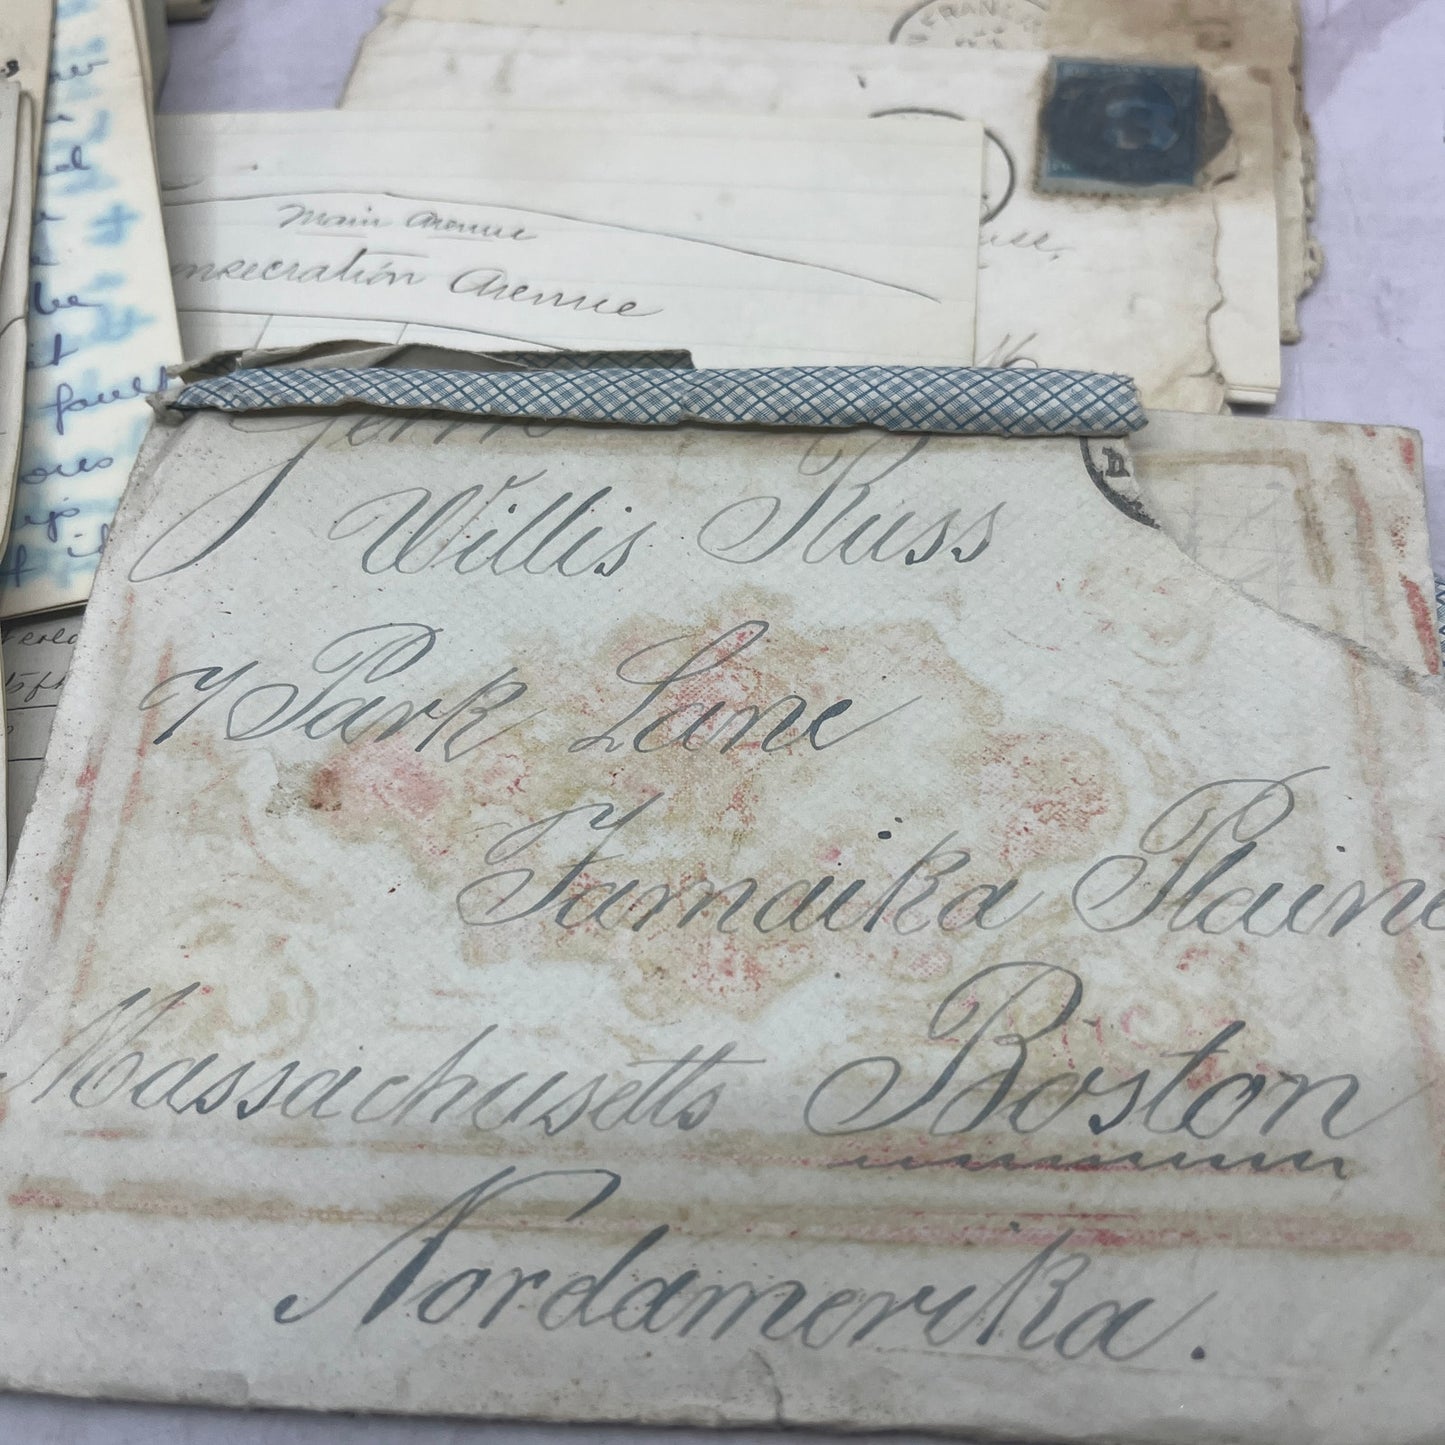 FRAN
Main Avenue
nsecration Avenue
be
it
fault
ous
Willis Russ
7 Park Lane
Jamaika Plaine
Massachusetts Boston
Nordamerika.